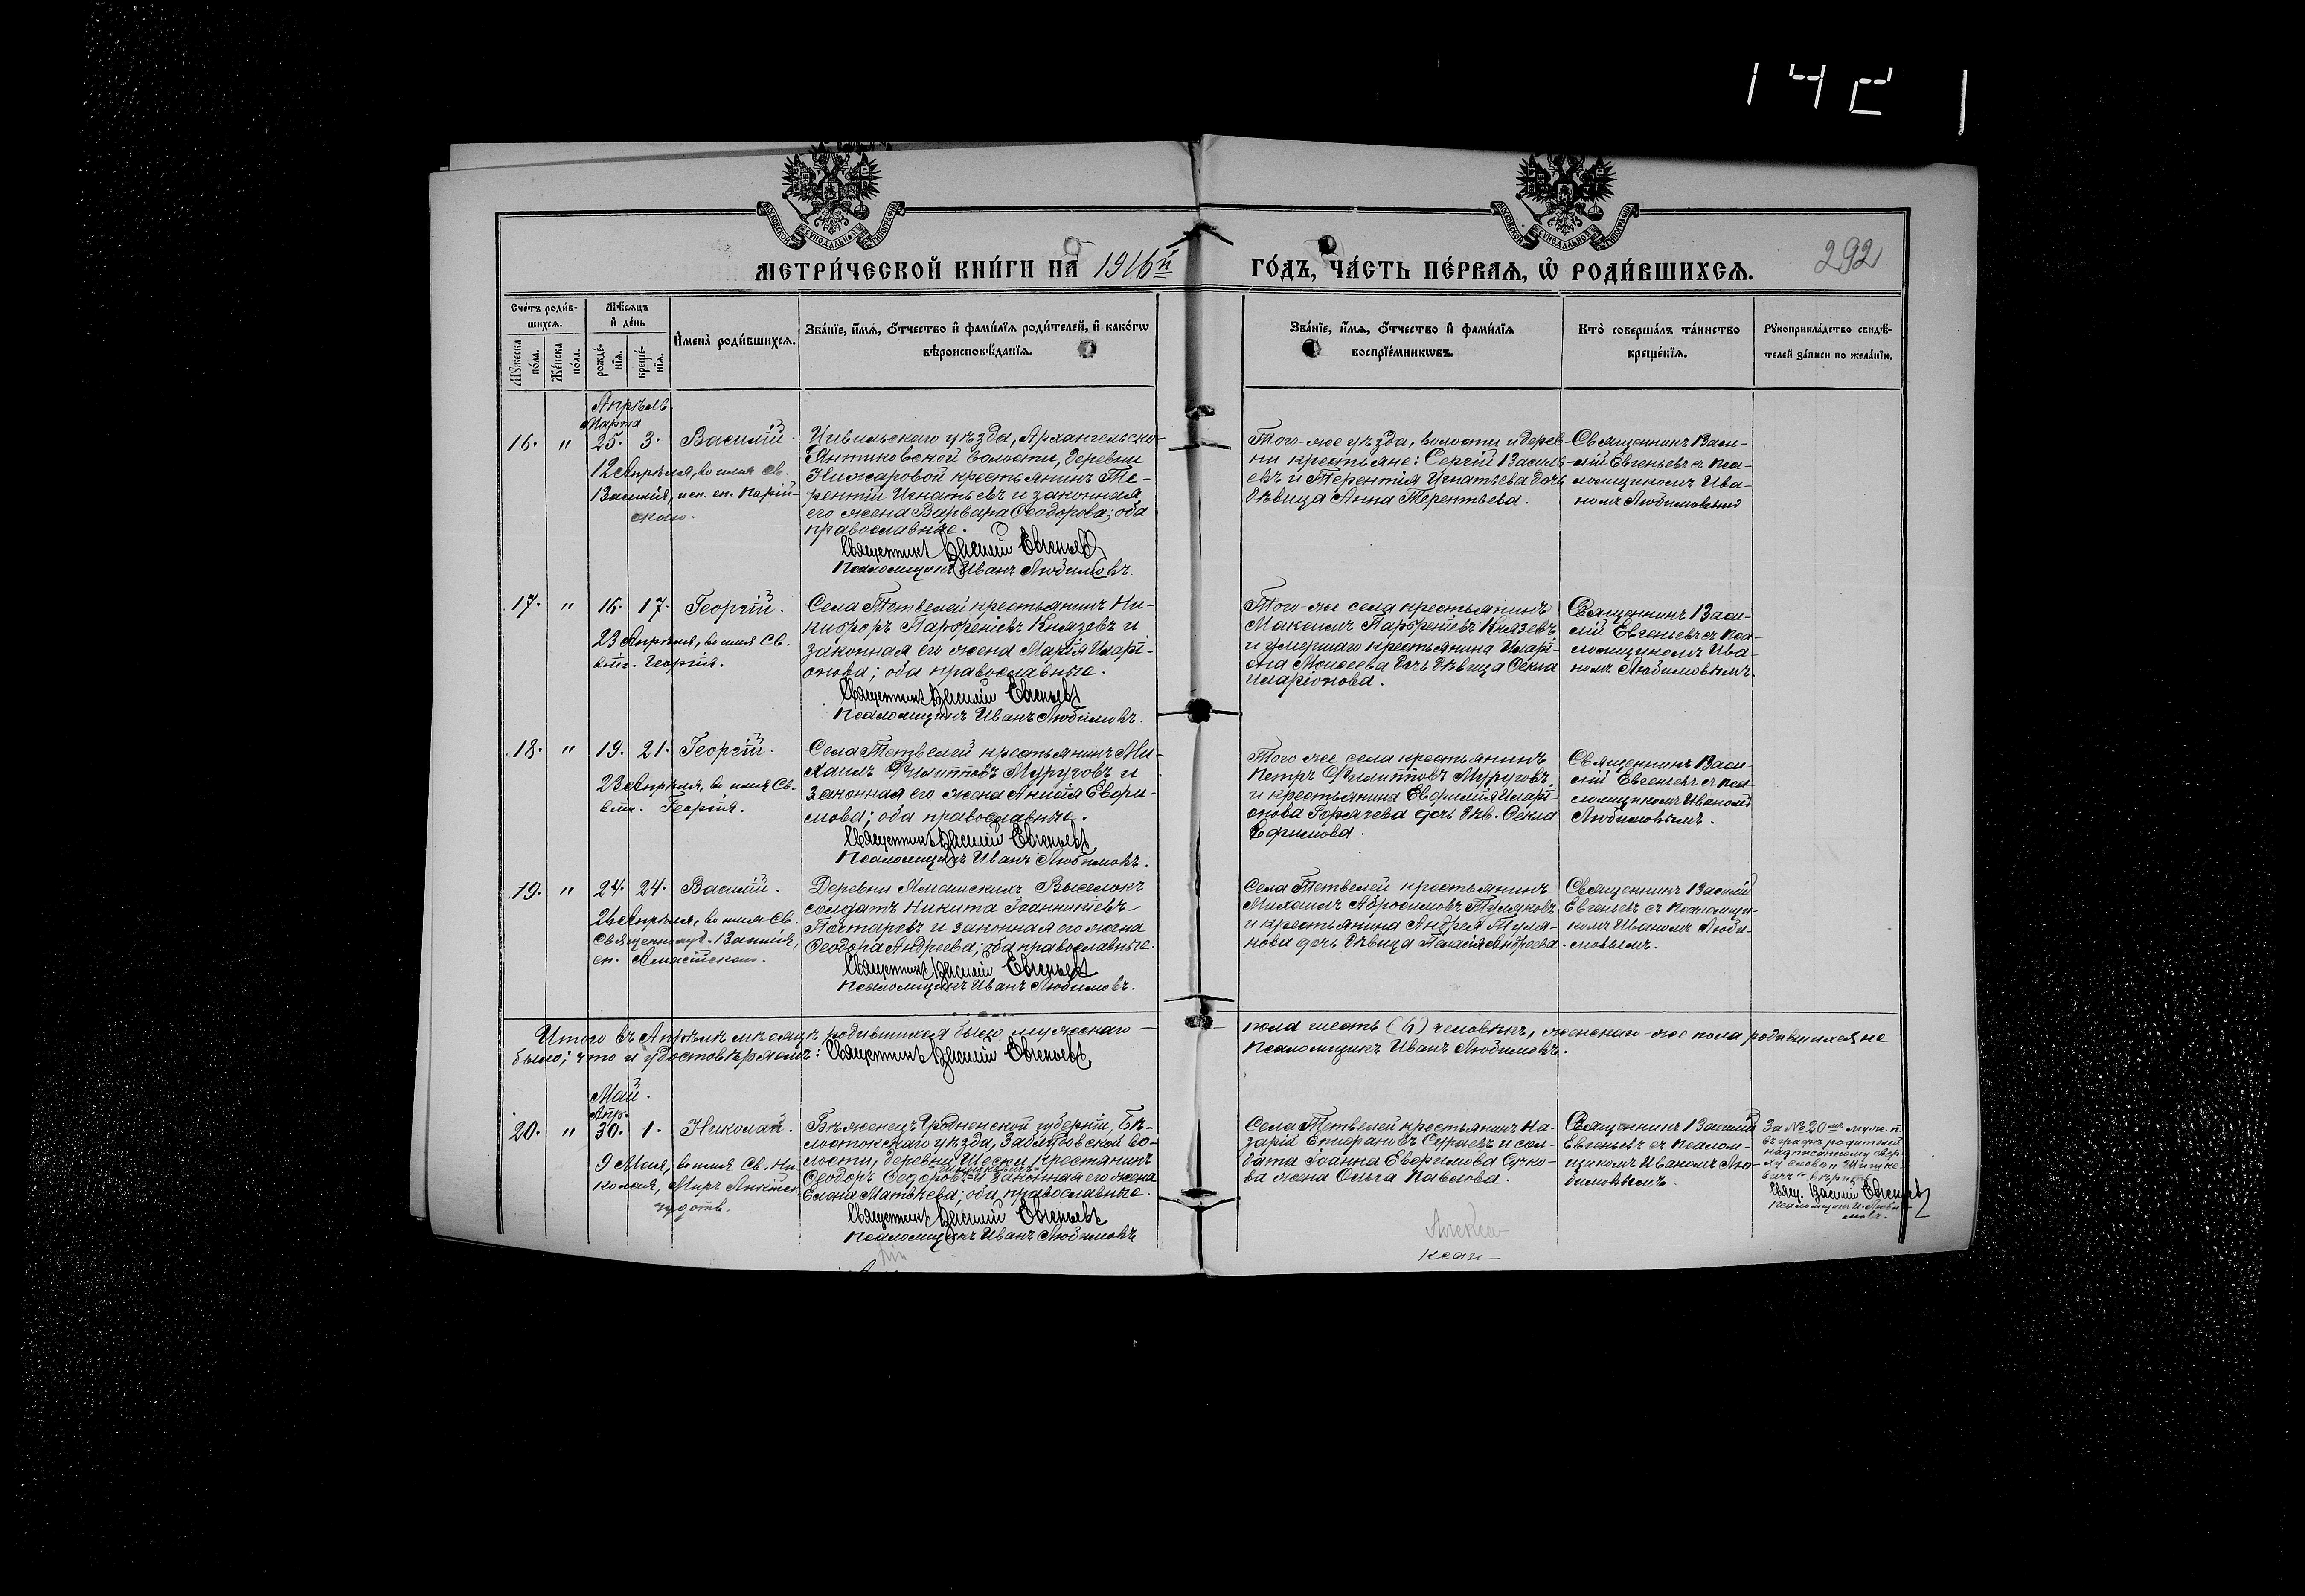 1421
МОСКОВСКОЙ СѴНОДАЛЬНОЙ ТИПОГРАФІИ
МОСКОВСКОЙ СѴНОДАЛЬНОЙ ТИПОГРАФІИ
МЕТРИ́ЧЕСКОЙ КНИ́ГИ НА 1916й
ГО́ДЪ, ЧА́СТЬ ПЕ́РВАЯ, Ѡ РОДИ́ВШИХСЯ.
292
Сче́тъ роди́в-
шихся.
Мѣ́сяцъ
и де́нь
Мꙋ́жеска
по́ла.
Же́нска
по́ла.
рожде́-
нїя.
креще́-
нїя.
Имена̀ роди́вшихся.
Зва́нїе, и́мя, ѻ́тчество и фами́лїя роди́телей, и како́гѡ
вѣроисповѣ́данїя.
Зва́нїе, и́мя, ѻ́тчество и фами́лїя
воспрїе́мникѡвъ.
Кто̀ соверша́лъ та́инство
креще́нїя.
Рꙋкоприкла́дство свидѣ́-
телей за́писи по жела́нїю.
Апрѣль
Марта
16. " 25. 3. Василій.
12 Апрѣля, во имя св.
Василія, исп. еп. Парій-
скаго.
Цивильскаго уѣзда, Архангельско-
Янтиковской волости, деревни
Нижаровой крестьянинъ Те-
рентій Игнатьевъ и законная
его жена Варвара Ѳеодорова; оба
православные.
Священникъ Василій Евгеньевъ
Псаломщикъ Иванъ Любимовъ.
Того-же уѣзда, волости и дерев-
ни крестьяне: Сергій Василь-
евъ и Терентія Игнатьева дочь
дѣвица Анна Терентьева.
Священникъ Васи-
лій Евгеньевъ съ пса-
ломщикомъ Ива-
номъ Любимовымъ
17. " 16. 17. Георгій.
23 Апрѣля, во имя Св.
влмч. Георгія.
Села Тетвелей крестьянинъ Ни-
кифоръ Парѳеніевъ Князевъ и
законная его жена Марія Иларі-
онова; оба православные.
Священникъ Василій Евгеньевъ
Псаломщикъ Иванъ Любимовъ.
Того-же села крестьянинъ
Максимъ Парѳеніевъ Князевъ
и умершаго крестьянина Иларі-
она Моисеева дочь дѣвица Ѳекла
Иларіонова.
Священникъ Васи-
лій Евгеньевъ съ пса-
ломщикомъ Ива-
номъ Любимовымъ.
18. " 19. 21. Георгій.
23 Апрѣля, во имя Св.
влмч. Георгія.
Села Тетвелей крестьянинъ Ми-
хаилъ Филипповъ Муруговъ и
законная его жена Анисія Евфи-
мова; оба православные.
Священникъ Василій Евгеньевъ
Псаломщикъ Иванъ Любимовъ.
Того же села крестьянинъ
Петръ Филипповъ Муруговъ
и крестьянина Евфимія Иларі-
онова Горячева дочь дѣв. Ѳекла
Ефимова.
Священникъ Васи-
лій Евгеньевъ съ пса-
ломщикомъ Иваномъ
Любимовымъ.
19. " 24. 24. Василій.
26 Апрѣля, во имя Св.
Священномуч. Василія,
еп. Амасійскаго.
Деревни Выселокъ
солдатъ Никита Іоанникіевъ
и законная его жена
Ѳеодора Андреева; оба православные.
Священникъ Василій Евгеньевъ
Псаломщикъ Иванъ Любимовъ.
Села Тетвелей крестьянинъ
Михаилъ Абросимовъ Туляковъ
и крестьянина Андрея Туля-
кова дочь дѣвица Пелагія Андреева.
Священникъ Василій
Евгеньевъ съ псаломщи-
комъ Иваномъ Люби-
мовымъ.
Итого въ Апрѣлѣ мѣсяцѣ родившихся было мужескаго
пола шесть (6) человѣкъ, женскаго-же пола родившихся не
было; что и удостовѣряемъ: Священникъ Василій Евгеньевъ
Псаломщикъ Иванъ Любимовъ.
Май.
Апр.
20. " 30. 1. Николай.
9 Мая, во имя Св. Ни-
колая, Мирликійск.
чудотв.
Бѣженецъ Гродненской губерніи, Бѣ-
лостокскаго уѣзда, Заблудовской во-
лости, деревни крестьянинъ
Ѳеодоръ Ѳедоровъ и законная его жена
Елена Матвѣева; оба православные.
Священникъ Василій Евгеньевъ
Псаломщикъ Иванъ Любимовъ
Села Тетвелей крестьянинъ На-
зарій Епифановъ Сураевъ и сол-
дата Іоанна Евфимова Сучко-
ва жена Ольга Павлова.
Священникъ Василій
Евгеньевъ съ псалом-
щикомъ Иваномъ Лю-
бимовымъ.
За № 20мъ муж. п.
въ графѣ родителей
надписанному свер-
ху слово
вѣрить
Свящ. Василій Евгеньевъ
Псаломщикъ И. Люби-
мовъ.
Псал-